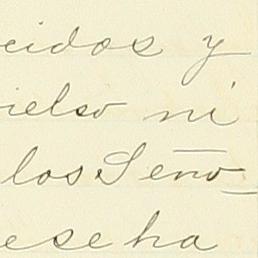 cidos y
ielso ni
los Seño_
ese ha